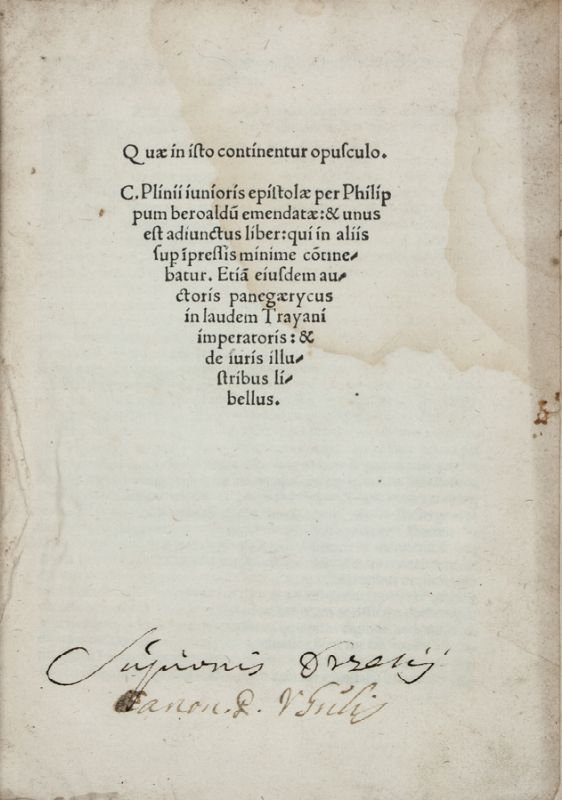 Quæ in iſto continentur opuſculo.
C. Plinii iunioris epiſtolæ per Philip
pum beroaldū emendatæ: & unus
eſt adiunctus liber: qui in aliis
ſup īpreſſis minime cōtine-
batur. Etiā eiuſdem au-
ctoris panegærycus
in laudem Trayani
imperatoris: &
de iuris illu-
ſtribus li-
bellus.
Canon.